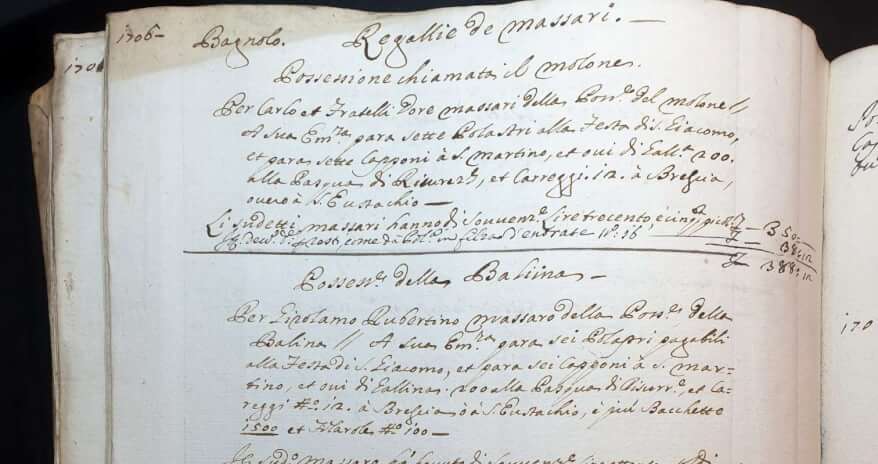 1706
Bagnolo. Regallie de massari.
170
Possessione chiamata il molone.
Per Carlo et Fratelli Dore massari della Posse. del molone //
A Sua Em.za para sette Polastri alla Festa di S. Giacomo,
et para sette Capponi à S. Martino, et oui di Gall.e 200.
alla Pasqua di, et Carreggi. 12. à Brescia,
ouero à S. Eustachio
Li sudetti massari hanno di Souuen.e lire trecento, è cinq.ta 350
come da in filza d'entrate n.o 16 38:12
388:12
Possess.e della Balina
Per Girolamo Rubertino massaro della Poss.e della
Balina // A Sua Em.za para sei Polastri pagabili
alla Festa di S. Giacomo, et para sei Capponi à S. Mar-
tino, et oui di Gallina. 200 alla Pasqua di, et Ca-
reggi n.o 12. à Brescia ò à S. Eustachio, è più Bacchette
1500 et n.o 100
170